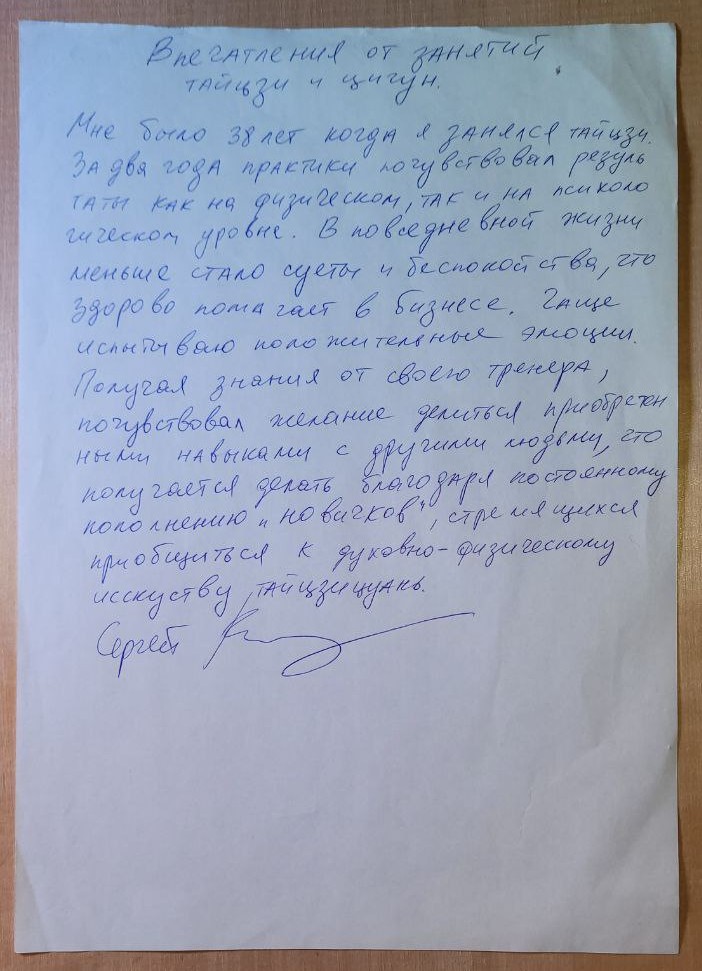 Впечатления от занятий
тайцзи и цигун.
Мне было 38 лет когда я занялся тайцзи.
За два года практики почувствовал резуль
таты как на физическом, так и на психоло
гическом уровне. В повседневной жизни
меньше стало суеты и беспокойства, что
здорово помагает в бизнесе. Чаще
испытываю положительные эмоции.
Получая знания от своего тренера,
почувствовал желание делиться приобретен
ными навыками с другими людьми, что
получается делать благодаря постоянному
пополнению „новичков", стремящихся
приобщиться к духовно-физическому
исскуству тайцзицуань.
Сергей